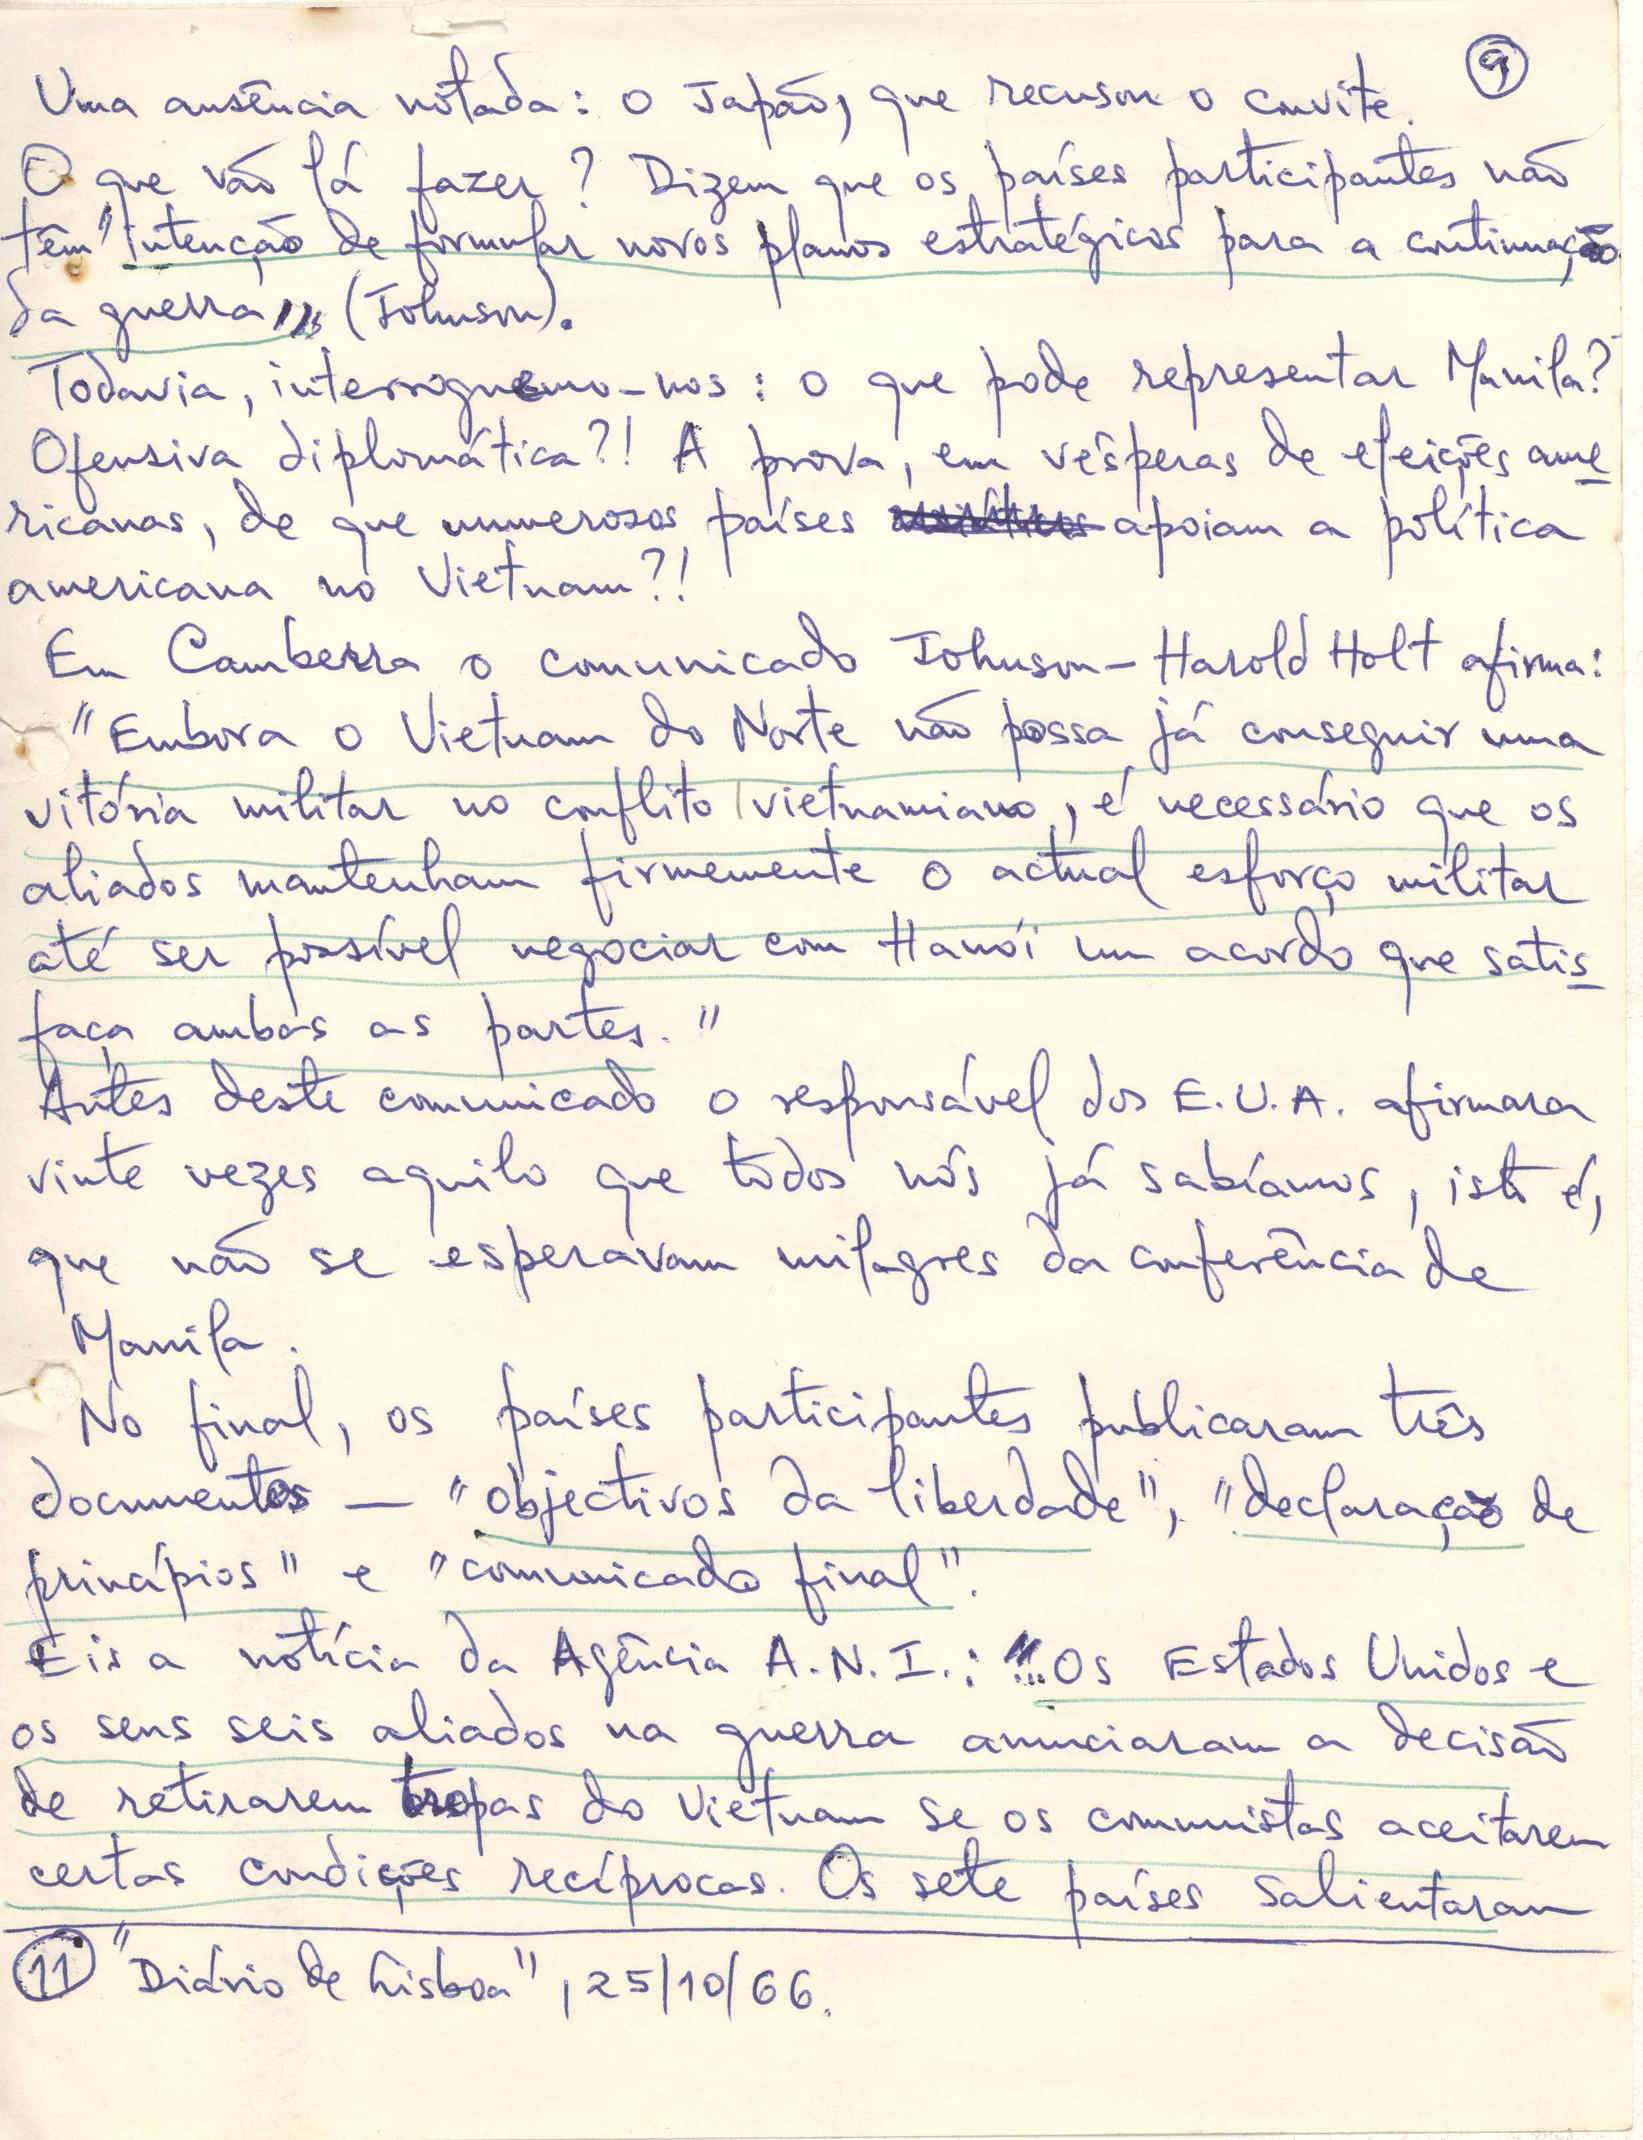 9
Uma ausência notada: o Japão, que recusou o convite.
O que vão lá fazer? Dizem que os países participantes não
têm "intenção de formular novos planos estratégicos para a continuação
da guerra" (Johnson).
Todavia, interroguemo-nos: o que pode representar Manila?
Ofensiva diplomática?! A prova, em vésperas de eleições ame
ricanas, de que numerosos países apoiam a política
americana no Vietnam?!
Em Camberra o comunicado Johnson-Harold Holt afirma:
"Embora o Vietnam do Norte não possa já conseguir uma
vitória militar no conflito vietnamiano, é necessário que os
aliados mantenham firmemente o actual esforço militar
até ser possível negociar com Hanói um acordo que satis
faça ambas as partes."
Antes deste comunicado o responsável dos E.U.A. afirmara
vinte vezes aquilo que todos nós já sabíamos, isto é,
que não se esperavam milagres da conferência de
Manila.
No final, os países participantes publicaram três
documentos — "objectivos da liberdade", "declaração de
princípios" e "comunicado final".
Eis a notícia da Agência A.N.I.: "...Os Estados Unidos e
os seus seis aliados na guerra anunciaram a decisão
de retirarem tropas do Vietnam se os comunistas aceitarem
certas condições recíprocas. Os sete países salientaram
11 "Diário de Lisboa", 25/10/66.